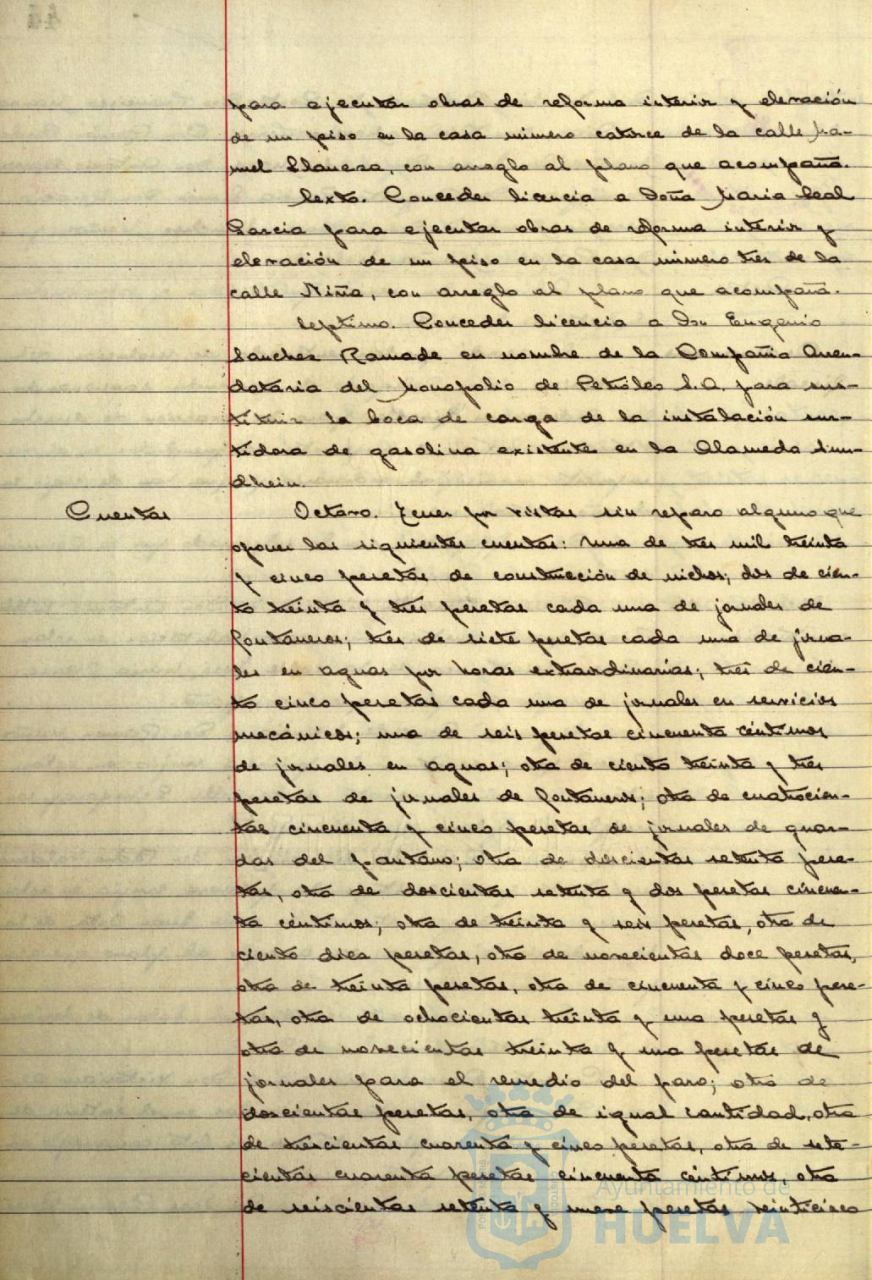 para ejecutar obras de reforma interior y elevación
de un piso en la casa número catorce de la calle Ma-
nuel Llaneza, con arreglo al plano que acompaña.
Sexto. Conceder licencia a Doña María Leal
García para ejecutar obras de reforma interior y
elevación de un piso en la casa número tres de la
calle Niña, con arreglo al plano que acompaña.
Septimo. Conceder licencia a Don Eugenio
Sanchez Ramade en nombre de la Compañia Arren-
dataria del Monopolio de Petróleo S.A. para sus-
tituir la boca de carga de la instalación sur-
tidora de gasolina existente en la Alameda Sun-
dheim.
Cuentas
Octavo. Tener por vistas sin reparo alguno que
oponer las siguientes cuentas: una de tres mil treinta
y cinco pesetas de construcción de nichos; dos de cien-
to treinta y tres pesetas cada una de jornales de
fontaneros; tres de siete pesetas cada una de jorna-
les en aguas por horas extraordinarias; tres de cien-
to cinco pesetas cada una de jornales en servicios
mecánicos; una de seis pesetas cincuenta céntimos
de jornales en aguas; otra de ciento treinta y tres
pesetas de jornales de fontaneros; otra de cuatrocien-
tas cincuenta y cinco pesetas de jornales de guar-
das del pantano; otra de doscientas setenta pese-
tas, otra de doscientas setenta y dos pesetas cincuen-
ta céntimos; otra de treinta y seis pesetas, otra de
ciento diez pesetas, otra de novecientas doce pesetas,
otra de treinta pesetas, otra de cincuenta y cinco pese-
tas, otra de ochocientas treinta y una pesetas y
otra de novecientas treinta y una pesetas de
jornales para el remedio del paro; otra de
doscientas pesetas, otra de igual cantidad, otra
de trescientas cuarenta y cinco pesetas, otra de sete-
cientas cuarenta pesetas cincuenta céntimos, otra
de seiscientas setenta y nueve pesetas veinticinco
Ayuntamiento de
HUELVA